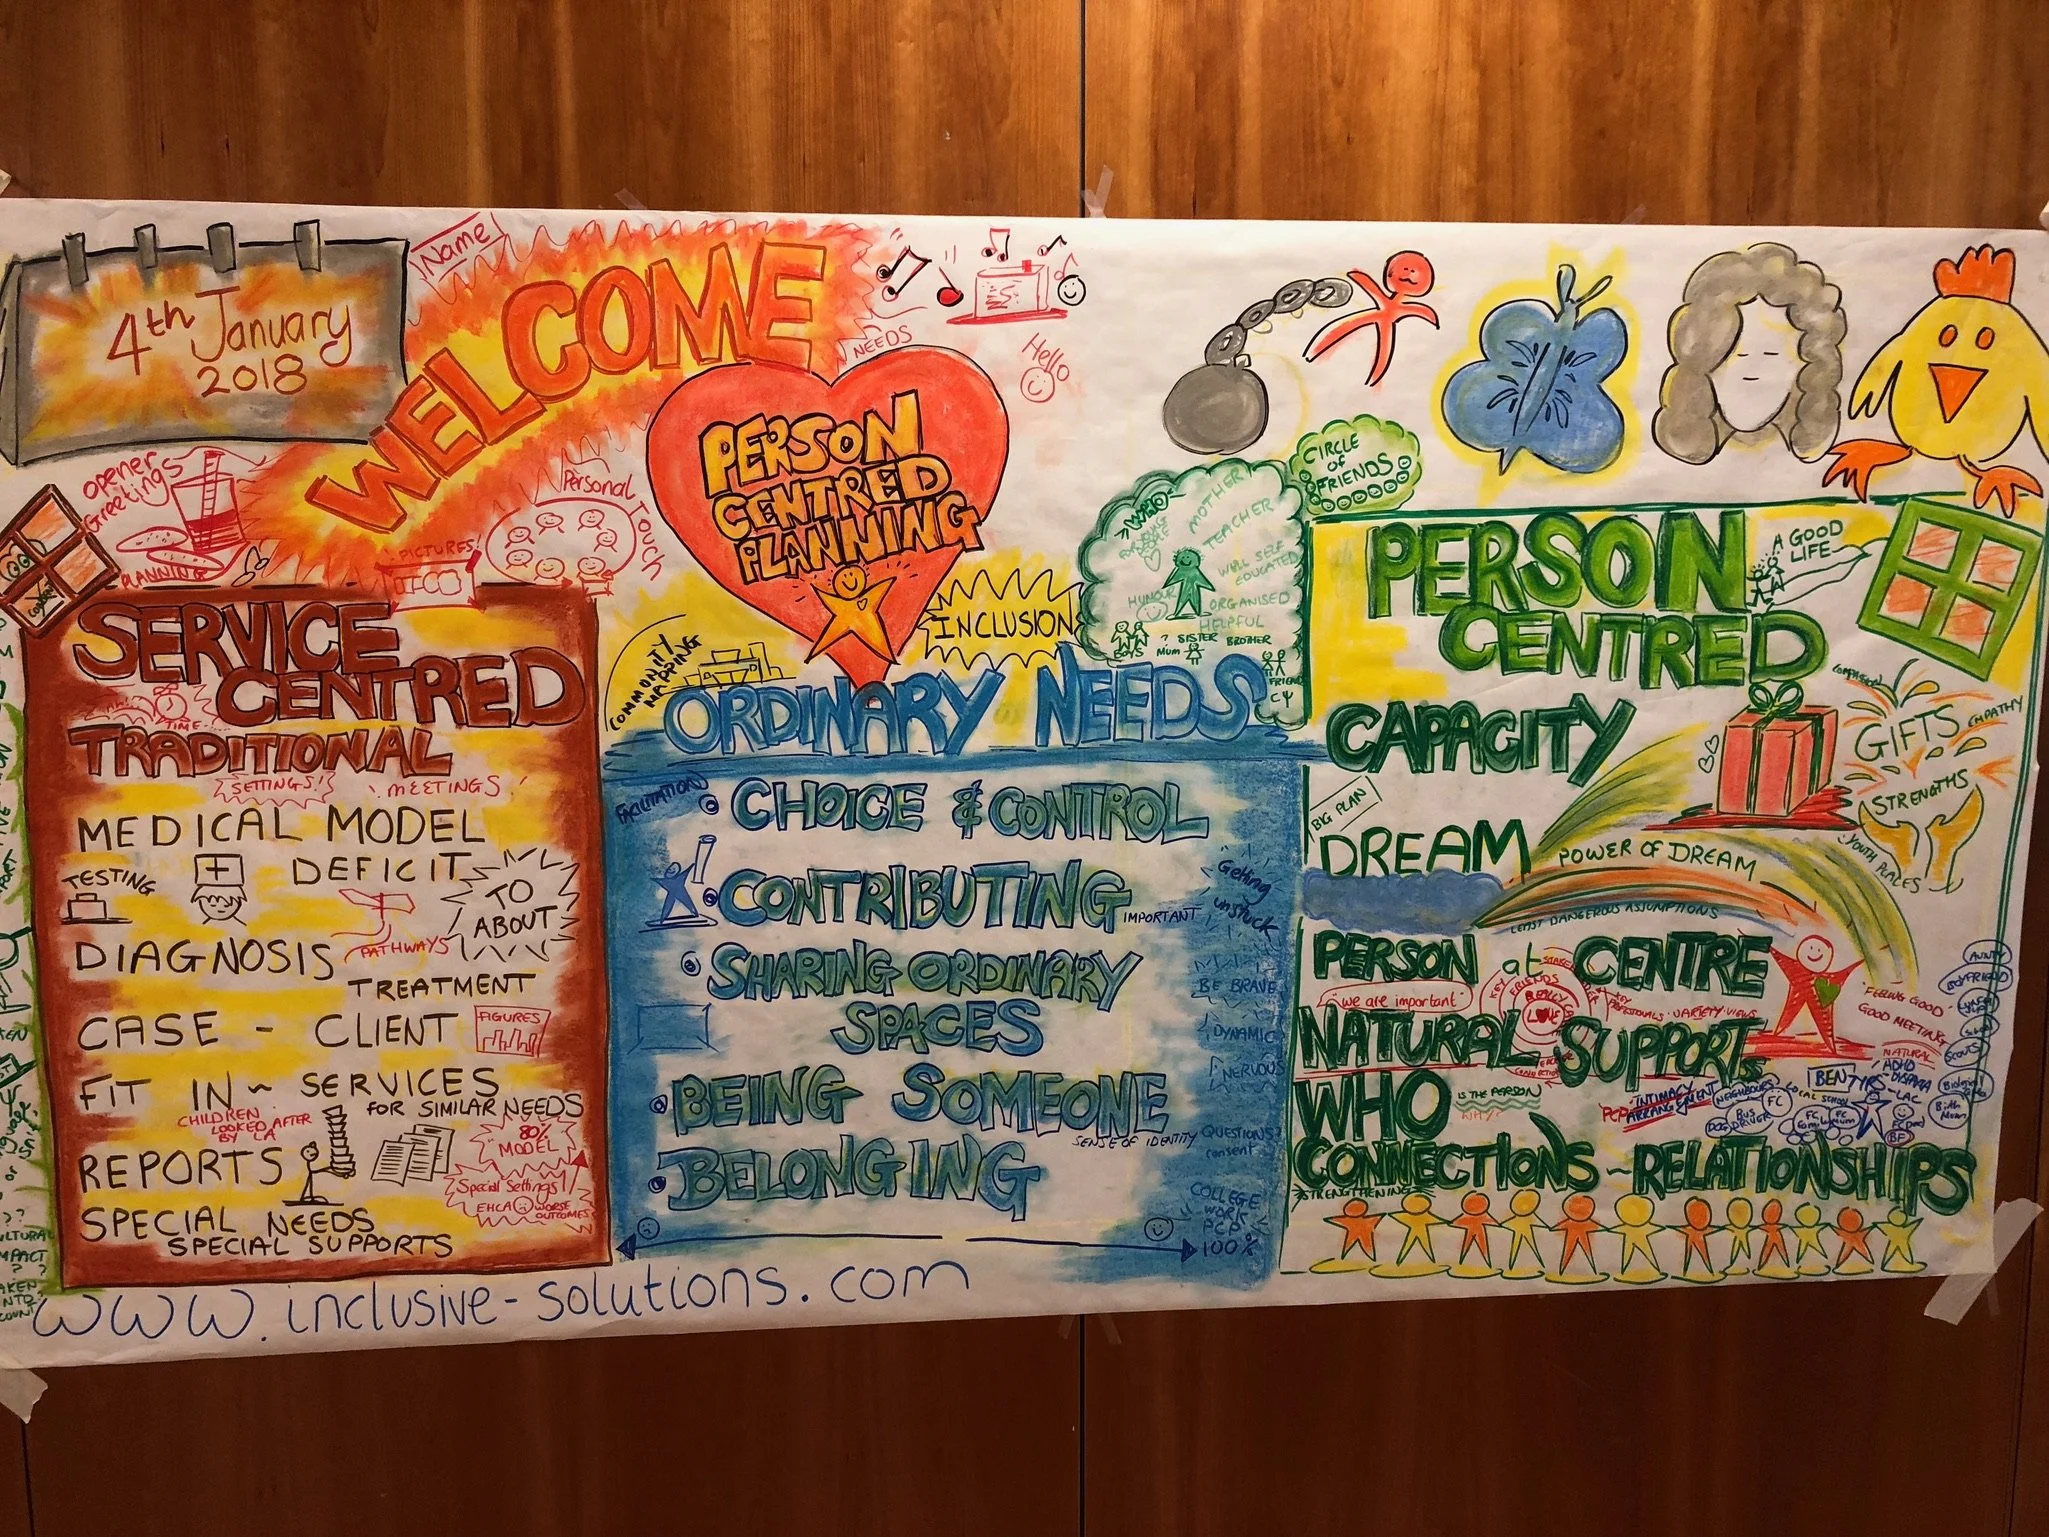 4th January
2018
Name
WELCOME
NEEDS
Hello
opener
Greetings
PLANNING
PICTURES!
Personal Touch
PERSON
CENTRED
PLANNING
INCLUSION
COMMUNITY
MAPPING
SERVICE
CENTRED
TIME
TRADITIONAL
SETTINGS!
MEETINGS
MEDICAL MODEL
DEFICIT
TESTING
TO
ABOUT
DIAGNOSIS
PATHWAYS
TREATMENT
CASE - CLIENT
FIGURES
FIT IN ~ SERVICES
FOR SIMILAR NEEDS
CHILDREN
LOOKED AFTER
BY LA
80%
MODEL
REPORTS
Special Settings
EHCA
WORSE
OUTCOMES
SPECIAL NEEDS
SPECIAL SUPPORTS
ORDINARY NEEDS
CHOICE & CONTROL
CONTRIBUTING
IMPORTANT
Getting
unstuck
SHARING ORDINARY
SPACES
BE BRAVE
DYNAMIC
NERVOUS
BEING SOMEONE
SENSE OF IDENTITY
QUESTIONS?
consent
BELONGING
COLLEGE
WORK
PCP
100%
CIRCLE
OF
FRIENDS
MOTHER
TEACHER
WELL SELF
EDUCATED
HUMOUR
ORGANISED
HELPFUL
BOYS
? SISTER BROTHER
Mum
FRIEND
PERSON
CENTRED
A GOOD
LIFE
CAPACITY
COMPASSION
GIFTS
EMPATHY
STRENGTHS
YOUTH PLACES
BIG PLAN
DREAM
POWER OF DREAM
LEAST DANGEROUS ASSUMPTIONS
PERSON at CENTRE
"we are important"
KEY
FRIENDS
REALLY
LOVE
VARIETY · VIEWS
"FEELING GOOD -
GOOD MEETING
NATURAL SUPPORTS
NATURAL
ADHD
DYSPRAXIA
LAC
AUNTY
BOYFRIEND
SCOUTS
Birth
Mum
WHO
IS THE PERSON
WHY?
PCP
INTIMACY
ARRANGEMENT
NEIGHBOURS
FC
BUS
DRIVER
LOCAL SCHOOL
BEN
TYRS
BF
CONNECTIONS ~ RELATIONSHIPS
STRENGTHENING
www.inclusive-solutions.com